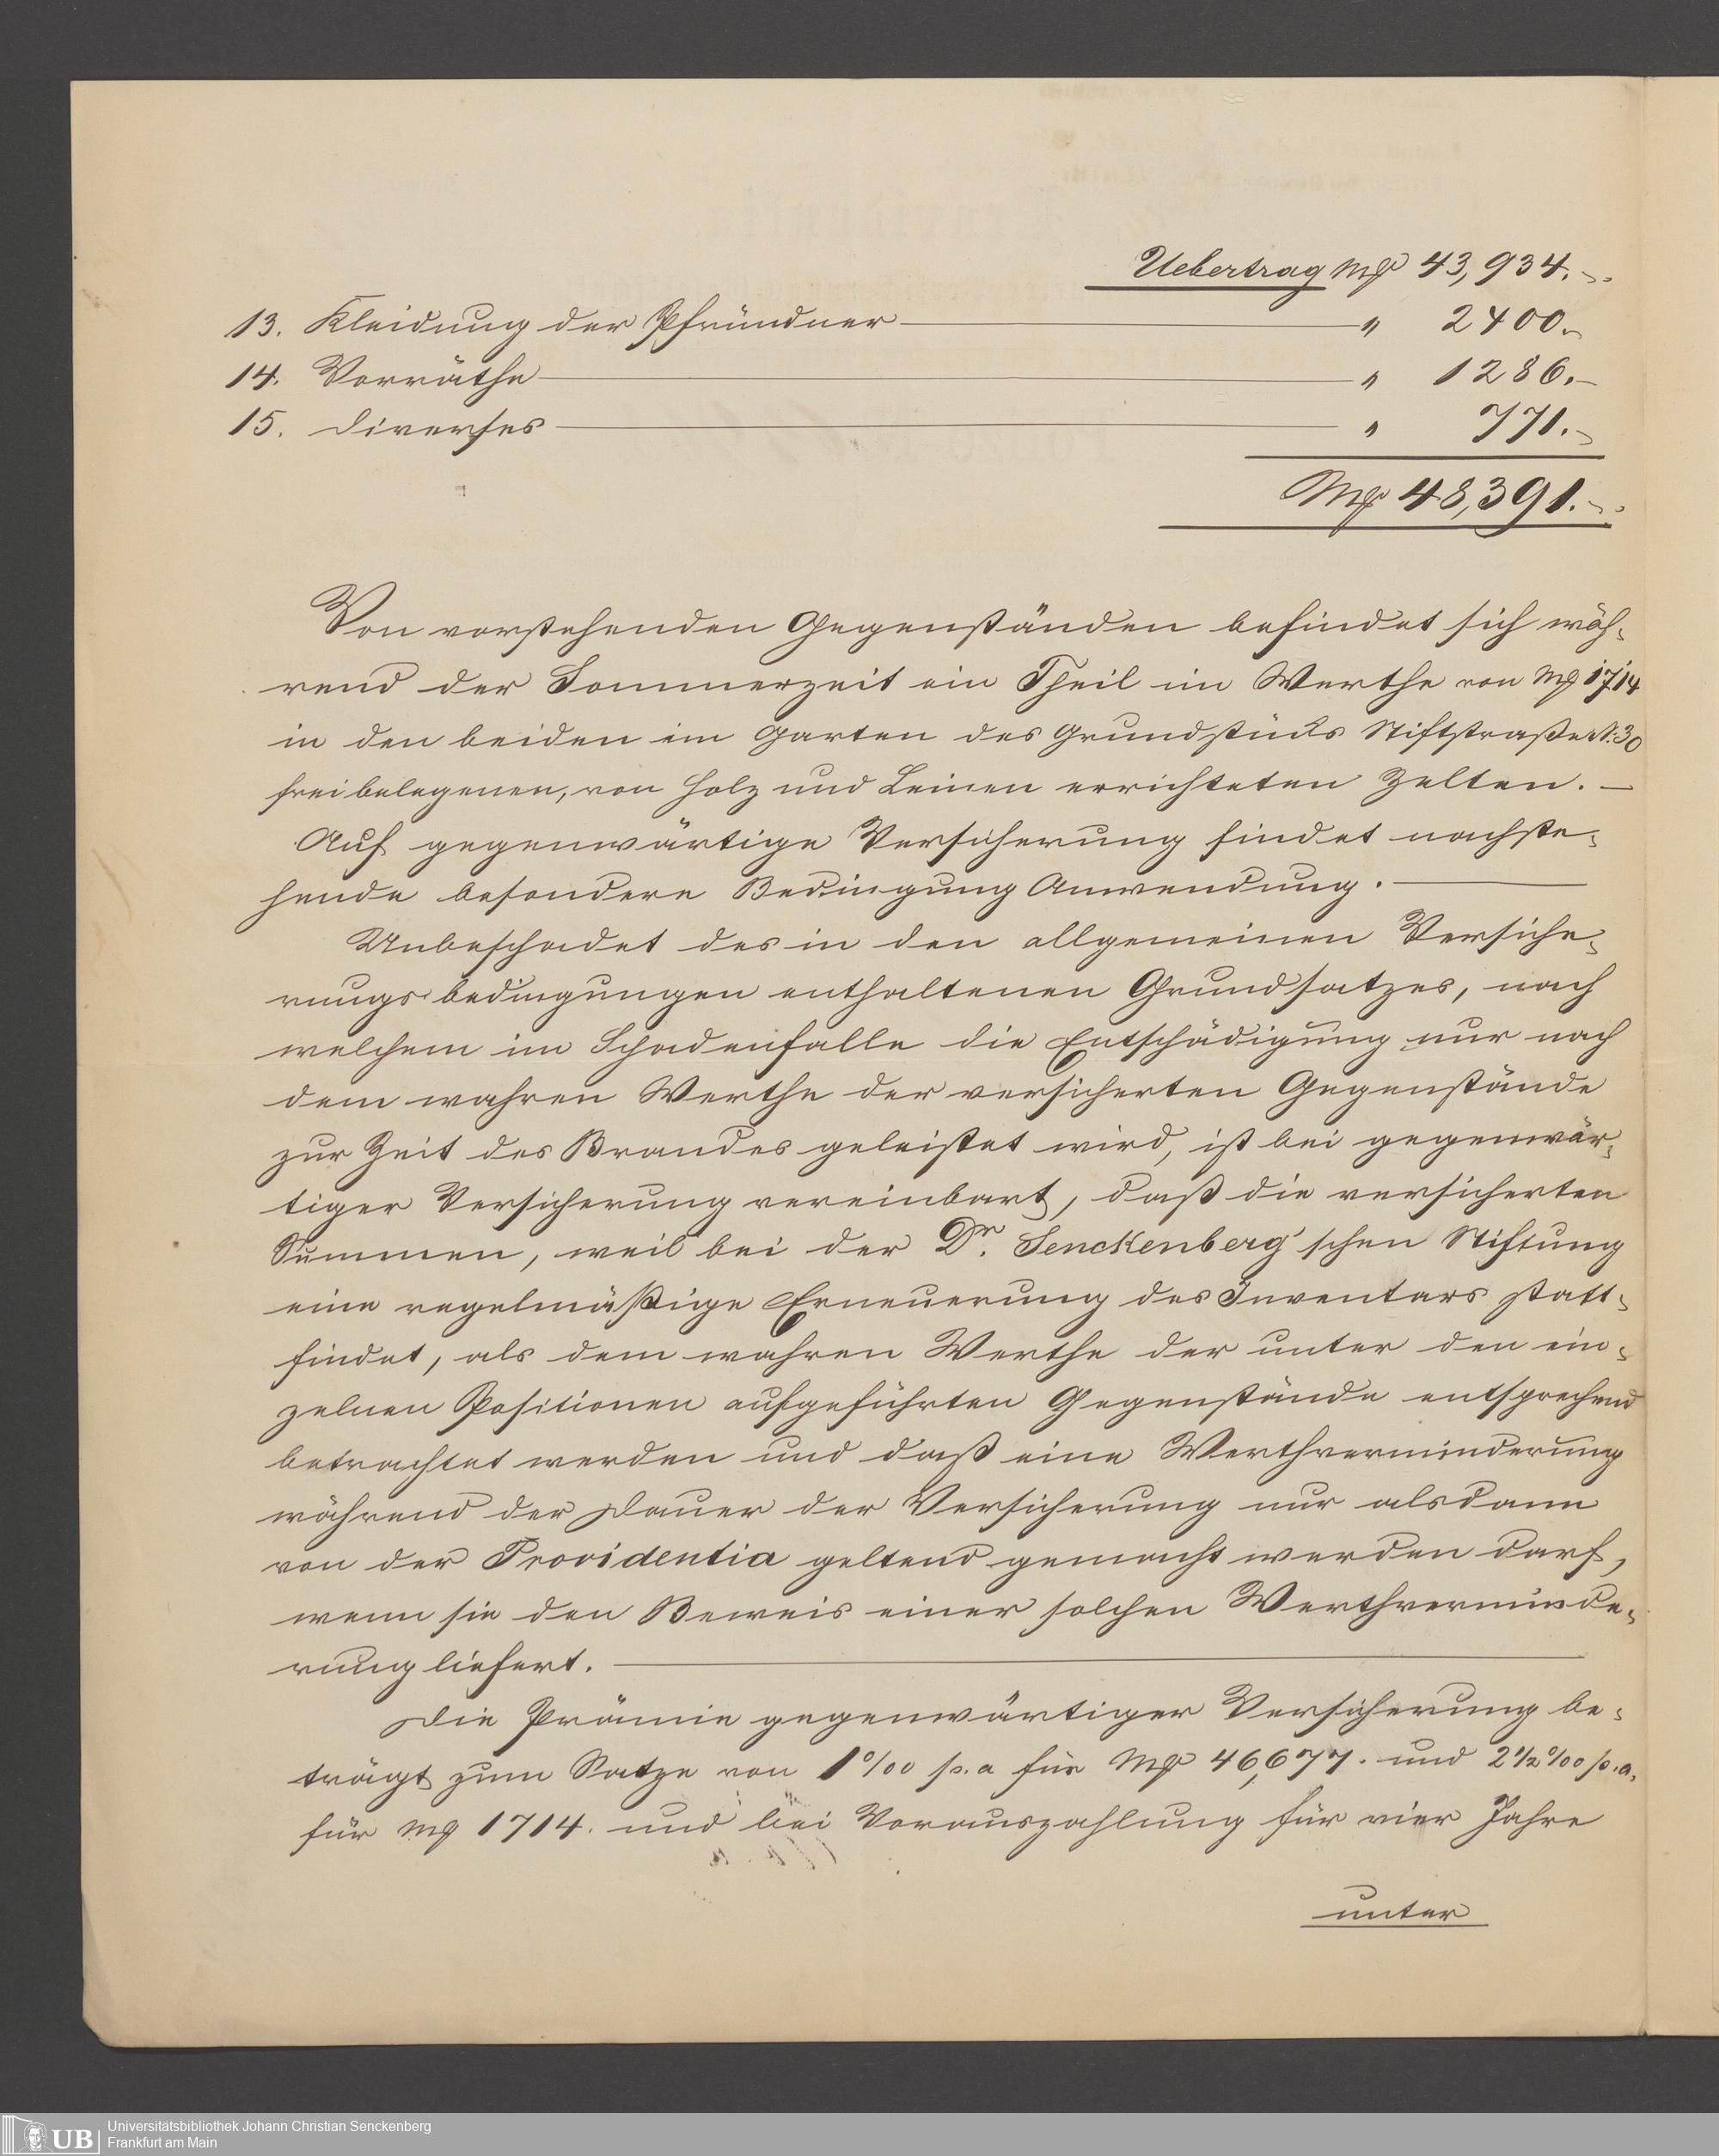 Uebertrag Mk 43,934.-.
13. Kleidung der Pfründner " 2400.-
14. Vorräthe " 1286.-
15. Diverses " 771.-
Mk 48,391.-.
Von vorstehenden Gegenständen befindet sich wäh-
rend der Sommerzeit ein Theil im Werthe von Mk 1714
in den beiden im Garten des Grundstücks Stiftstraße N: 30
frei belegenen, von Holz und Leinen errichteten Zelten. —
Auf gegenwärtige Versicherung findet nachste-
hende besondere Bedingung Anwendung. —
Unbeschadet des in den allgemeinen Versiche-
rungsbedingungen enthaltenen Grundsatzes, nach
welchem im Schadenfalle die Entschädigung nur nach
dem wahren Werthe der versicherten Gegenstände
zur Zeit des Brandes geleistet wird, ist bei gegenwär-
tiger Versicherung vereinbart, daß die versicherten
Summen, weil bei der Dr. Senckenberg'schen Stiftung
eine regelmäßige Erneuerung des Inventars statt-
findet, als dem wahren Werthe der unter den ein-
zelnen Positionen aufgeführten Gegenstände entsprechend
betrachtet werden und daß eine Werthverminderung
während der Dauer der Versicherung nur alsdann
von der Providentia geltend gemacht werden darf,
wenn sie den Beweis einer solchen Werthverminde-
rung liefert. —
Die Prämie gegenwärtiger Versicherung be-
trägt zum Satze von 1‰ p.a für Mk 46,677. und 2½‰ p.a.
für Mk 1714. und bei Vorauszahlung für vier Jahre
unter
UB Universitätsbibliothek Johann Christian Senckenberg
Frankfurt am Main